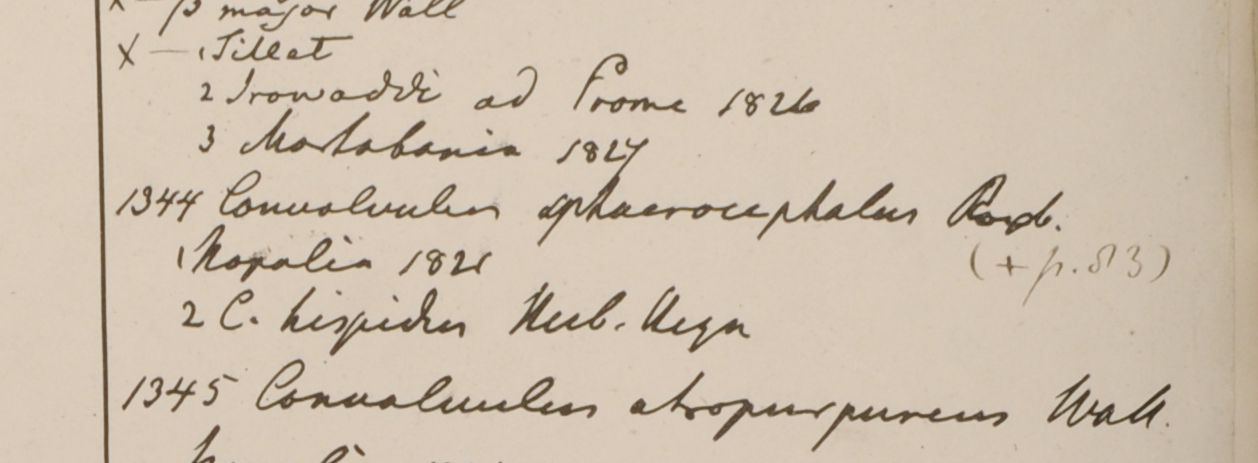 X — β major Wall
X — 1 Sillet
2 Irowaddi ad Prome 1826
3 Martabania 1827
1344 Convolvulus sphaerocephalus Roxb.
1 Napalia 1821
(+ p. 813)
2 C. hispidus Herb. Heyn
1345 Convolvulus atropurpureus Wall.